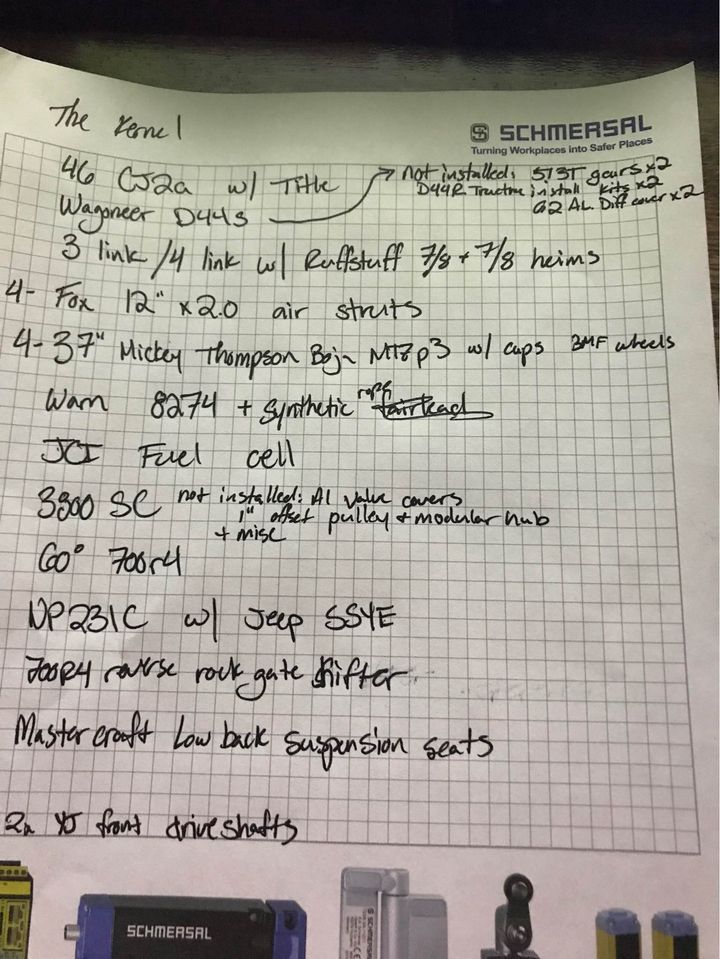 The Kernel
SCHMERSAL
Turning Workplaces into Safer Places
46 CJ2a w/ Title
not installed: 513T gears x2
D44R Tractive install kits x2
G2 AL. Diff cover x2
Wagoneer D44s
3 link /4 link w/ Ruffstuff 7/8 + 7/8 heims
4- Fox 12" x 2.0 air struts
4- 37" Mickey Thompson Baja MTZ p3 w/ cups BMF wheels
Warn 8274 + synthetic rope fairlead
JCI Fuel cell
3800 SC not installed: Al valve covers
1" offset pulley + modular hub
+ misc
60° 700r4
NP231C w/ Jeep SSYE
700R4 reverse rock gate shifter
Mastercraft Low back suspension seats
2x YJ front driveshafts
SCHMERSAL
SCHMERSAL